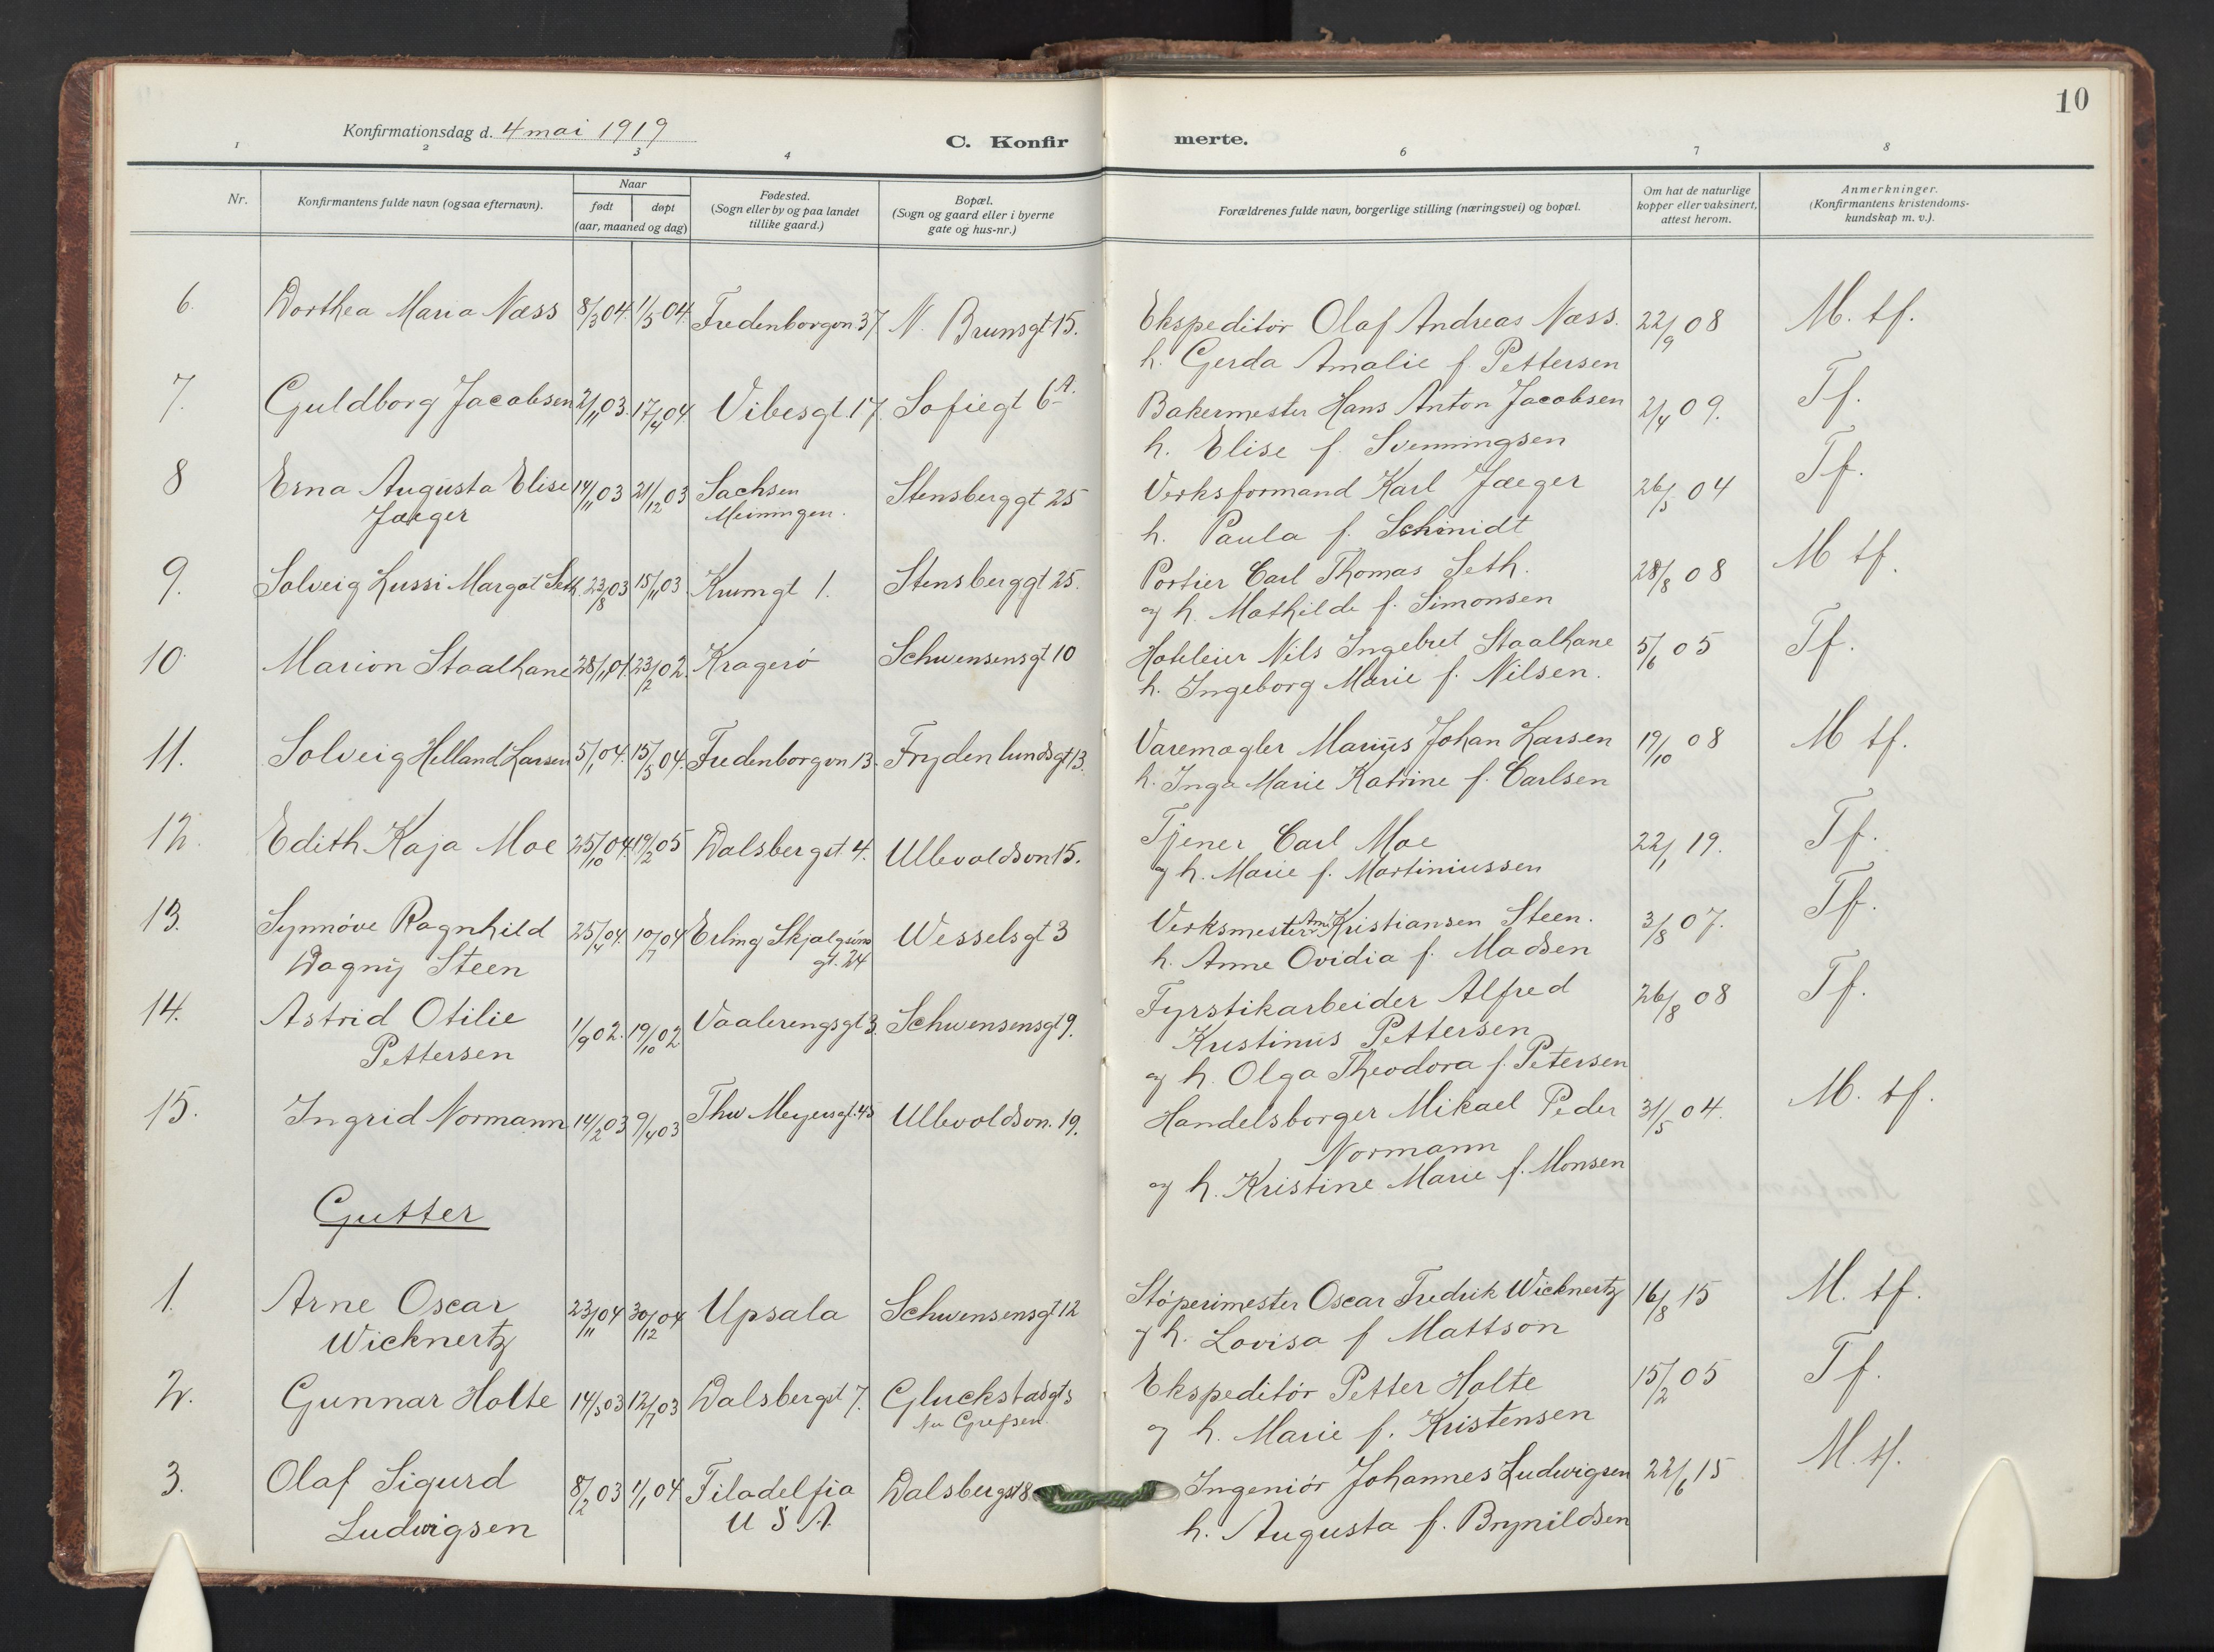 10
Konfirmationsdag d. 4 mai 1919
C. Konfirmerte.
1 2 3 4 6 7 8
Nr.
Konfirmantens fulde navn (ogsaa efternavn).
Naar
født døpt
(aar, maaned og dag)
Fødested.
(Sogn eller by og paa landet
tillike gaard.)
Bopæl.
(Sogn og gaard eller i byerne
gate og hus-nr.)
Forældrenes fulde navn, borgerlige stilling (næringsvei) og bopæl.
Om hat de naturlige
kopper eller vaksinert,
attest herom.
Anmerkninger.
(Konfirmantens kristendoms-
kundskap m. v.).
6. Dorthea Maria Næss 8/3 04. 1/5 04. Fredenborgvn. 37 N. Brunsgt 15. Ekspeditør Olaf Andreas Næss. 22/9 08 M. tf.
h. Gerda Amalie f. Pettersen
7. Guldborg Jacobsen 2/11 03. 17/4 04. Vibesgt. 17. Sofiegt 6 A. Bakermester Hans Anton Jacobsen 2/4 09. Tf.
h. Elise f. Svenningsen
8 Erna Augusta Elise 14/11 03 21/12 03 Sachsen Stensberggt 25 Verksformand Karl Jaeger 26/5 04 Tf.
Jaeger Meiningen. h. Paula f. Schmidt
9. Solveig Lussi Margot Seth. 23/8 03 15/11 03. Krumgt 1. Stensberggt 25. Portier Carl Thomas Seth. 28/8 08 M tf.
og h. Mathilde f. Simonsen
10. Marion Staalhane 28/11 01. 23/2 02. Kragerø Schwensensgt 10 Hoteleier Nils Ingebret Staalhane 5/6 05 Tf.
h. Ingeborg Marie f. Nilsen.
11. Solveig Helland Larsen 5/1 04. 15/5 04. Fredenborgvn 13. Frydenlundsgt 13. Varemægler Marius Johan Larsen 19/10 08 M tf.
h. Inga Marie Katrine f. Carlsen
12. Edith Kaja Moe 25/10 04. 19/2 05 Dalsbergst. 4. Ullevoldsvn 15. Tjener Carl Moe 22/1 19. Tf.
og h. Marie f. Martiniussen
13. Synnøve Ragnhild 25/4 04. 10/7 04 Erling Skjalgsøns Wesselsgt 3 Verksmester Kristiansen Steen. 3/8 07. Tf.
Dagny Steen gt. 24 h. Anne Ovidia f. Madsen
14. Astrid Otilie 1/9 02. 19/10 02. Vaalerengsgt 3. Schwensensgt 9. Fyrstikarbeider Alfred 26/8 08 Tf.
Pettersen Kristinus Pettersen
og h. Olga Theodora f. Petersen
15. Ingrid Normann 14/2 03 9/4 03 Thv Meyersgt. 43 Ullevoldsvn. 19. Handelsborger Mikael Peder 31/5 04. M. tf.
Normann
og h. Kristine Marie f. Monsen
Gutter
1. Arne Oscar 23/11 04 30/12 04 Upsala Schwensensgt 12 Støperimester Oscar Fredrik Wicknertz 16/8 15 M. tf.
Wicknertz og h. Lovisa f Mattson
2. Gunnar Holte 14/5 03 12/7 03 Dalsbergst 7. Gluckstadgts Ekspeditør Petter Holte 15/2 05 Tf.
Nu Grefsen. og h. Marie f. Kristensen
3. Olaf Sigurd 8/2 03 1/1 04 Filadelfia Dalsbergst 8 Ingeniør Johannes Ludwigsen 22/6 15 M. tf.
Ludwigsen U S A. h. Augusta f. Brynildsen